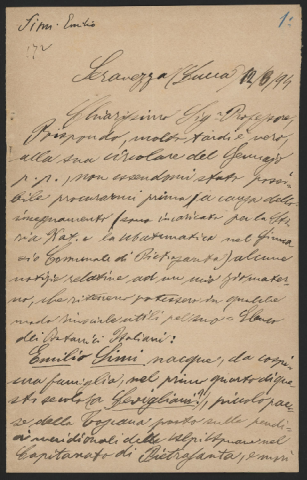 Simi Emilio
1:
Seravezza (Lucca) 12/3/94
Chiarissimo Sig. Professore,
Rispondo, molto tardi è vero,
alla sua circolare del Gennajo
p. p., non essendomi stato possi-
bile procurarmi prima (a causa dello
insegnamento sono incaricato per la Sto
ria Nat. e la Matematica nel Ginna
sio Comunale di Pietrasanta) alcune
notizie relative ad un mio
che ritenevo potessero in qualche
modo utili pel suo Elenco
dei Botanici Italiani:
Emilio Simi nacque, da cospi
cua famiglia, nel primo quarto di que
sto secolo a Levigliani, piccolo pae
se della Toscana posto sulle pendi
ci meridionali delle Alpi Apuane nel
Capitanato di Pietrasanta, e morì